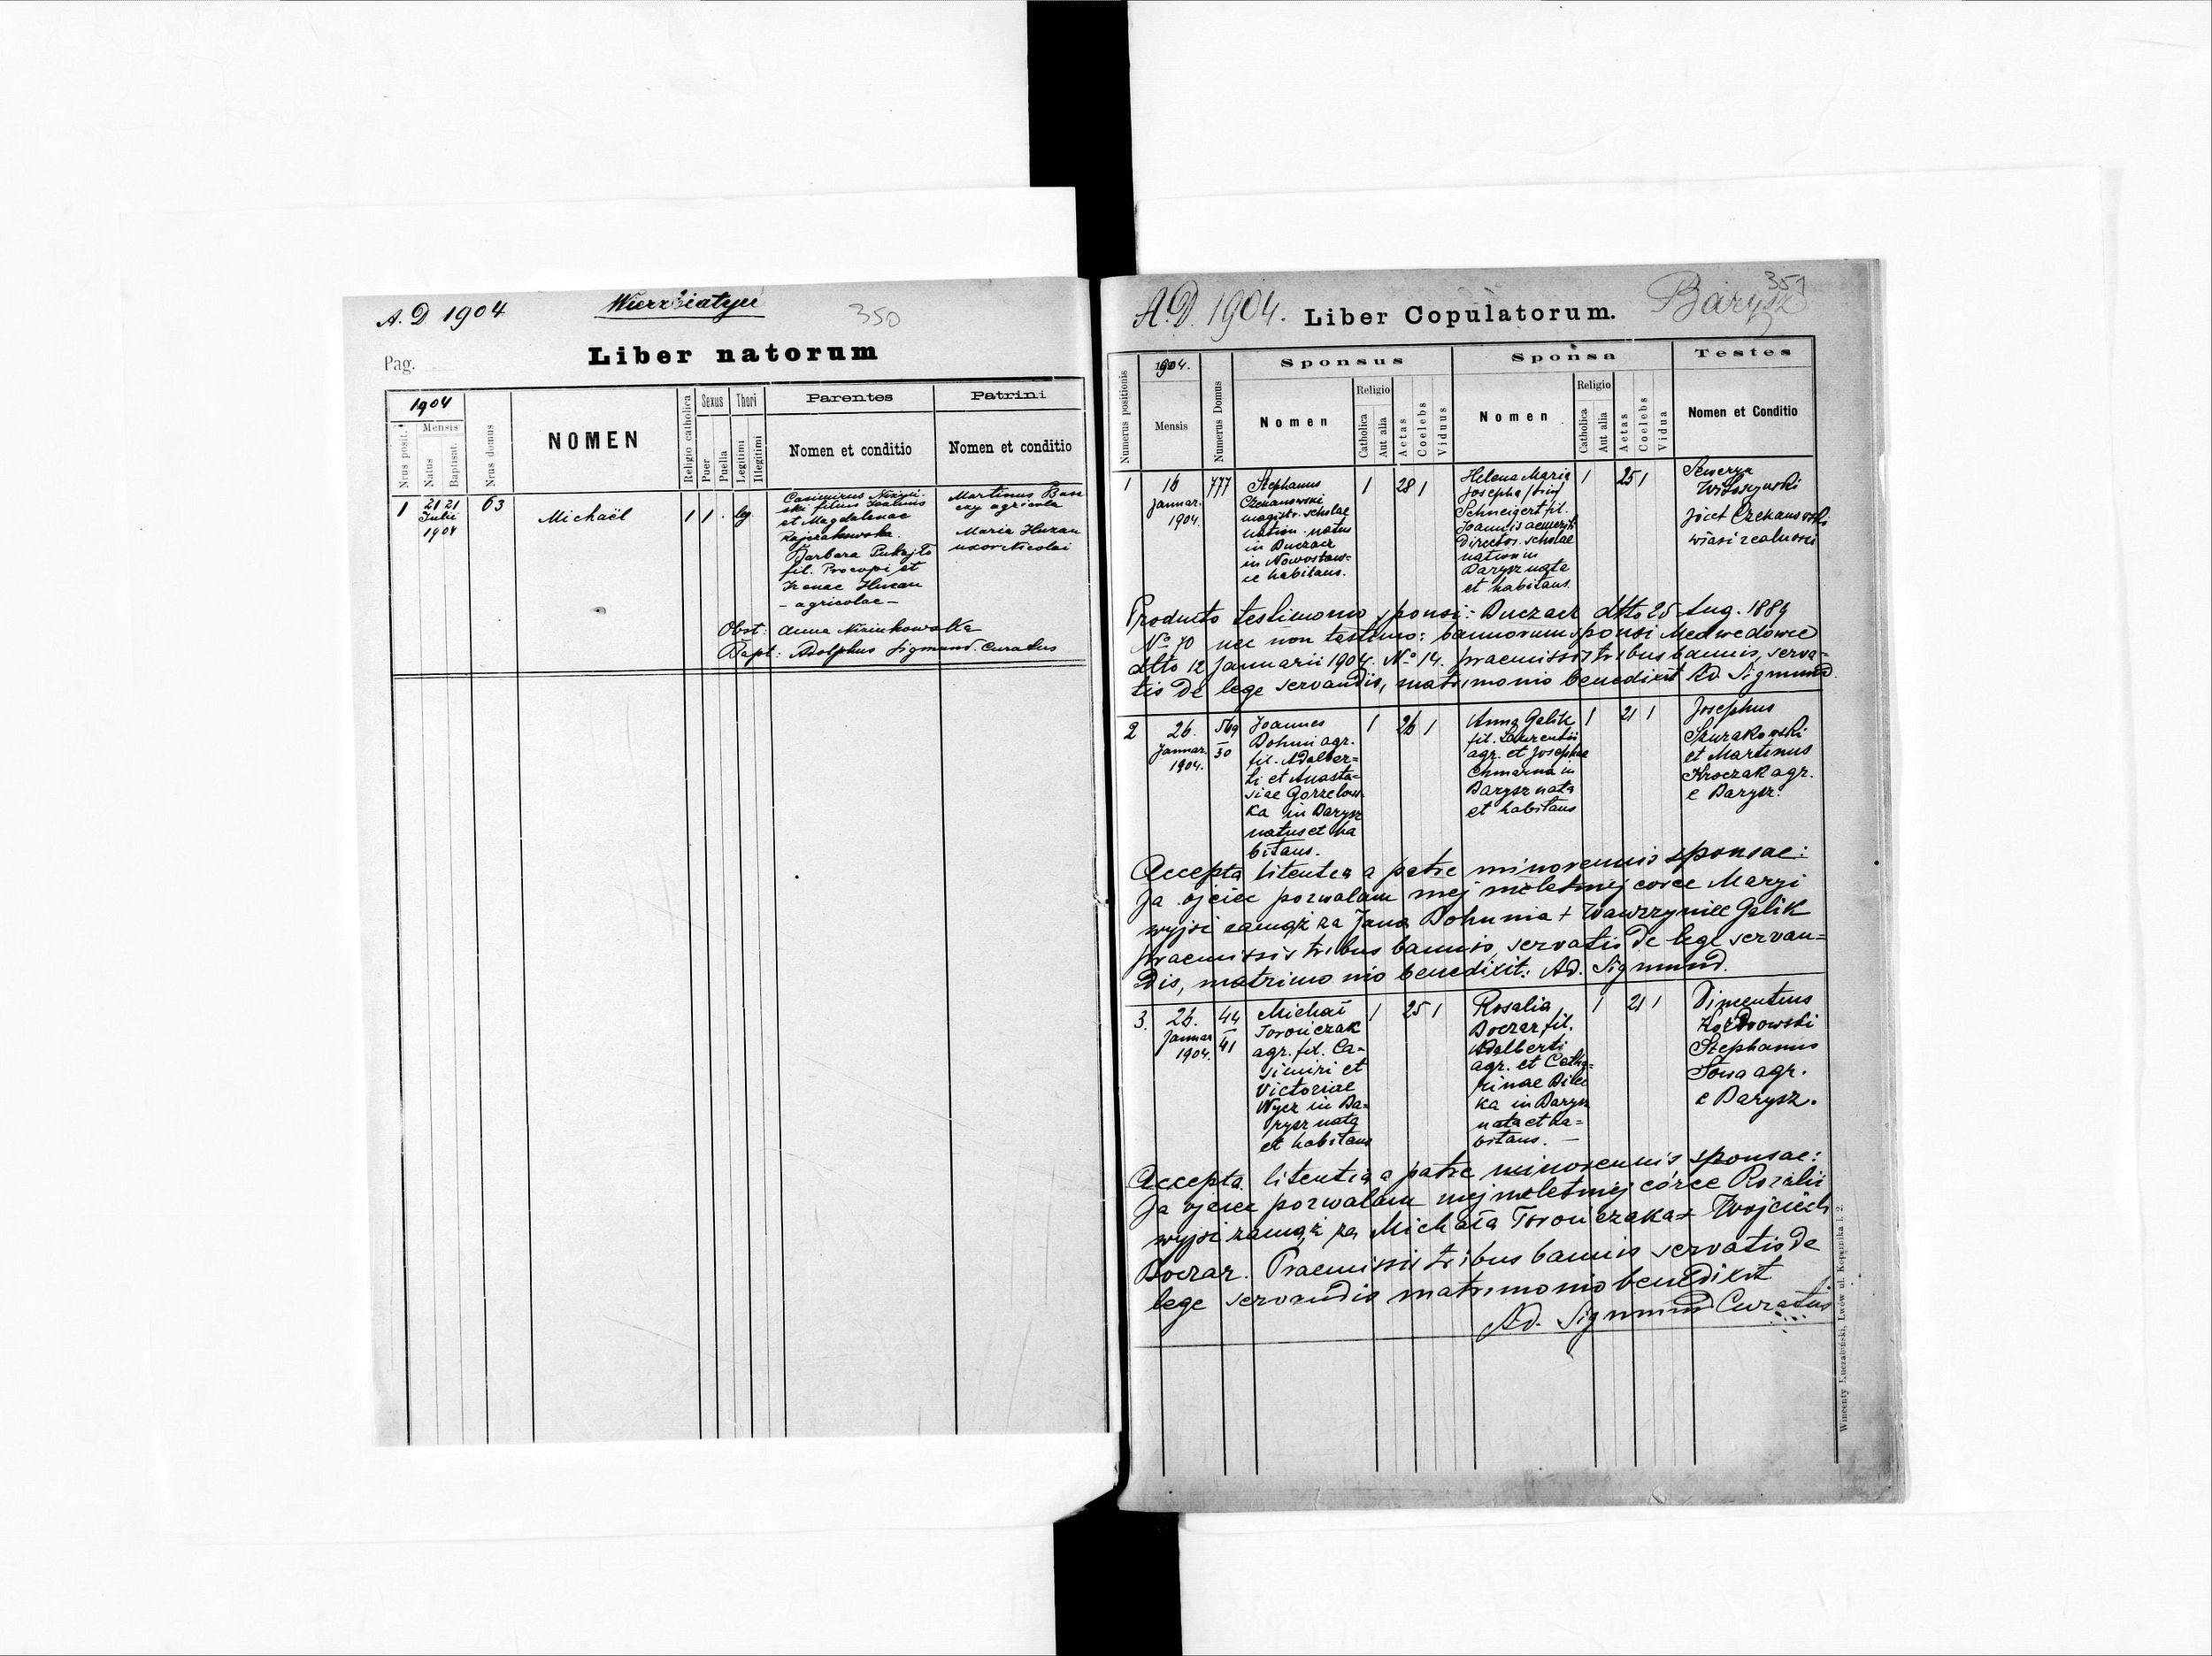 A. D 1904 Wierzbiatyn 350
Pag.
Liber natorum
1904
Mensis
Nrus posit.
Natus
Baptisat.
Nrus domus
NOMEN
Religio catholica
Sexus
Puer
Puella
Thori
Legitimi
Illegitimi
Parentes
Nomen et conditio
Patrini
Nomen et conditio
1
21 21
Julii
1904
63
Michaël
1 1 leg.
Casimirus
ski filius Joannis
et Magdalenae
Barbara Pukajło
fil. Procopi et
Irenae Huzan
- agricolae -
Martinus Ban
czy agricola
Maria Huzan
uxor Nicolai
Obst: Anna
Bapt: Adolphus Sigmund. Curatus
A.D. 1904. Liber Copulatorum. Barysz 351
Numerus positionis
1904.
Mensis
Numerus Domus
Sponsus
Nomen
Religio
Catholica
Aut alia
Aetas
Coelebs
Viduus
Sponsa
Nomen
Religio
Catholica
Aut alia
Aetas
Coelebs
Vidua
Testes
Nomen et Conditio
1
16
Januar.
1904.
777
Stephanus
Czekanowski
magistr. scholae
nation. natus
in Buczacz
in Nowostaw-
ce habitans.
1 28 1
Helena Maria
Josepha
Schneigert fil.
Joannis emeriti
Director. scholae
nation in
Barysz nata
et habitans.
1 25 1
Seweryn
Józef Czekanowski
Producto testimonio sponsi: Buczacz dtto 25 Aug. 1889
No 70 nec non testimo: bannorum sponsi Medwedowce
dtto 12 Januarii 1904. No 14. praemissis tribus bannis, serva-
tis de lege servandis, matrimonio benedixit Ad. Sigmund.
2
26.
Januar.
1904.
569
30
Joannes
Bohun agr.
fil. Adalber-
ti et Anasta-
siae Gorzelow-
ka in Barysz
natus et ha
bitans.
1 26 1
Anna Galik
fil. Laurentii
agr. et Josephae
Chmarna in
Barysz nata
et habitans
1 21 1
Josephus
Skurakowski
et Martinus
Kroczak agr.
e Barysz.
Accepta litentia a patre minorennis sponsae:
Ja ojciec pozwalam mej małetniej corce Maryi
wyjsi zamąż za Jana Bohunia + Wawrzyniec Galik
praemissis tribus bannis, servatis de lege servan=
dis, matrimonio benedixit: Ad. Sigmund.
3.
26.
Januar
1904.
44
41
Michał
Torończak
agr. fil. Ca-
simiri et
Victoriae
Wycz in Ba-
rysz nata
et habitans
1 25 1
Rosalia
Boczar fil.
Adalberti
agr. et Catha-
rinae Bilec
ka in Barysz
nata et ha=
bitans. -
1 21 1
Stephanus
Sowa agr.
e Barysz.
Accepta litentia a patre minorennis sponsae:
Ja ojciec pozwalam mej małetniej córce Rozalii
wyjsi zamąż za Michała Torończaka + Wojciech
Boczar. Praemissis tribus bannis servatis de
lege servandis matrimonio benedixit
Ad. Sigmund Curatus
Wincenty Kuczabiński, Lwów ul. Kopernika l. 2.